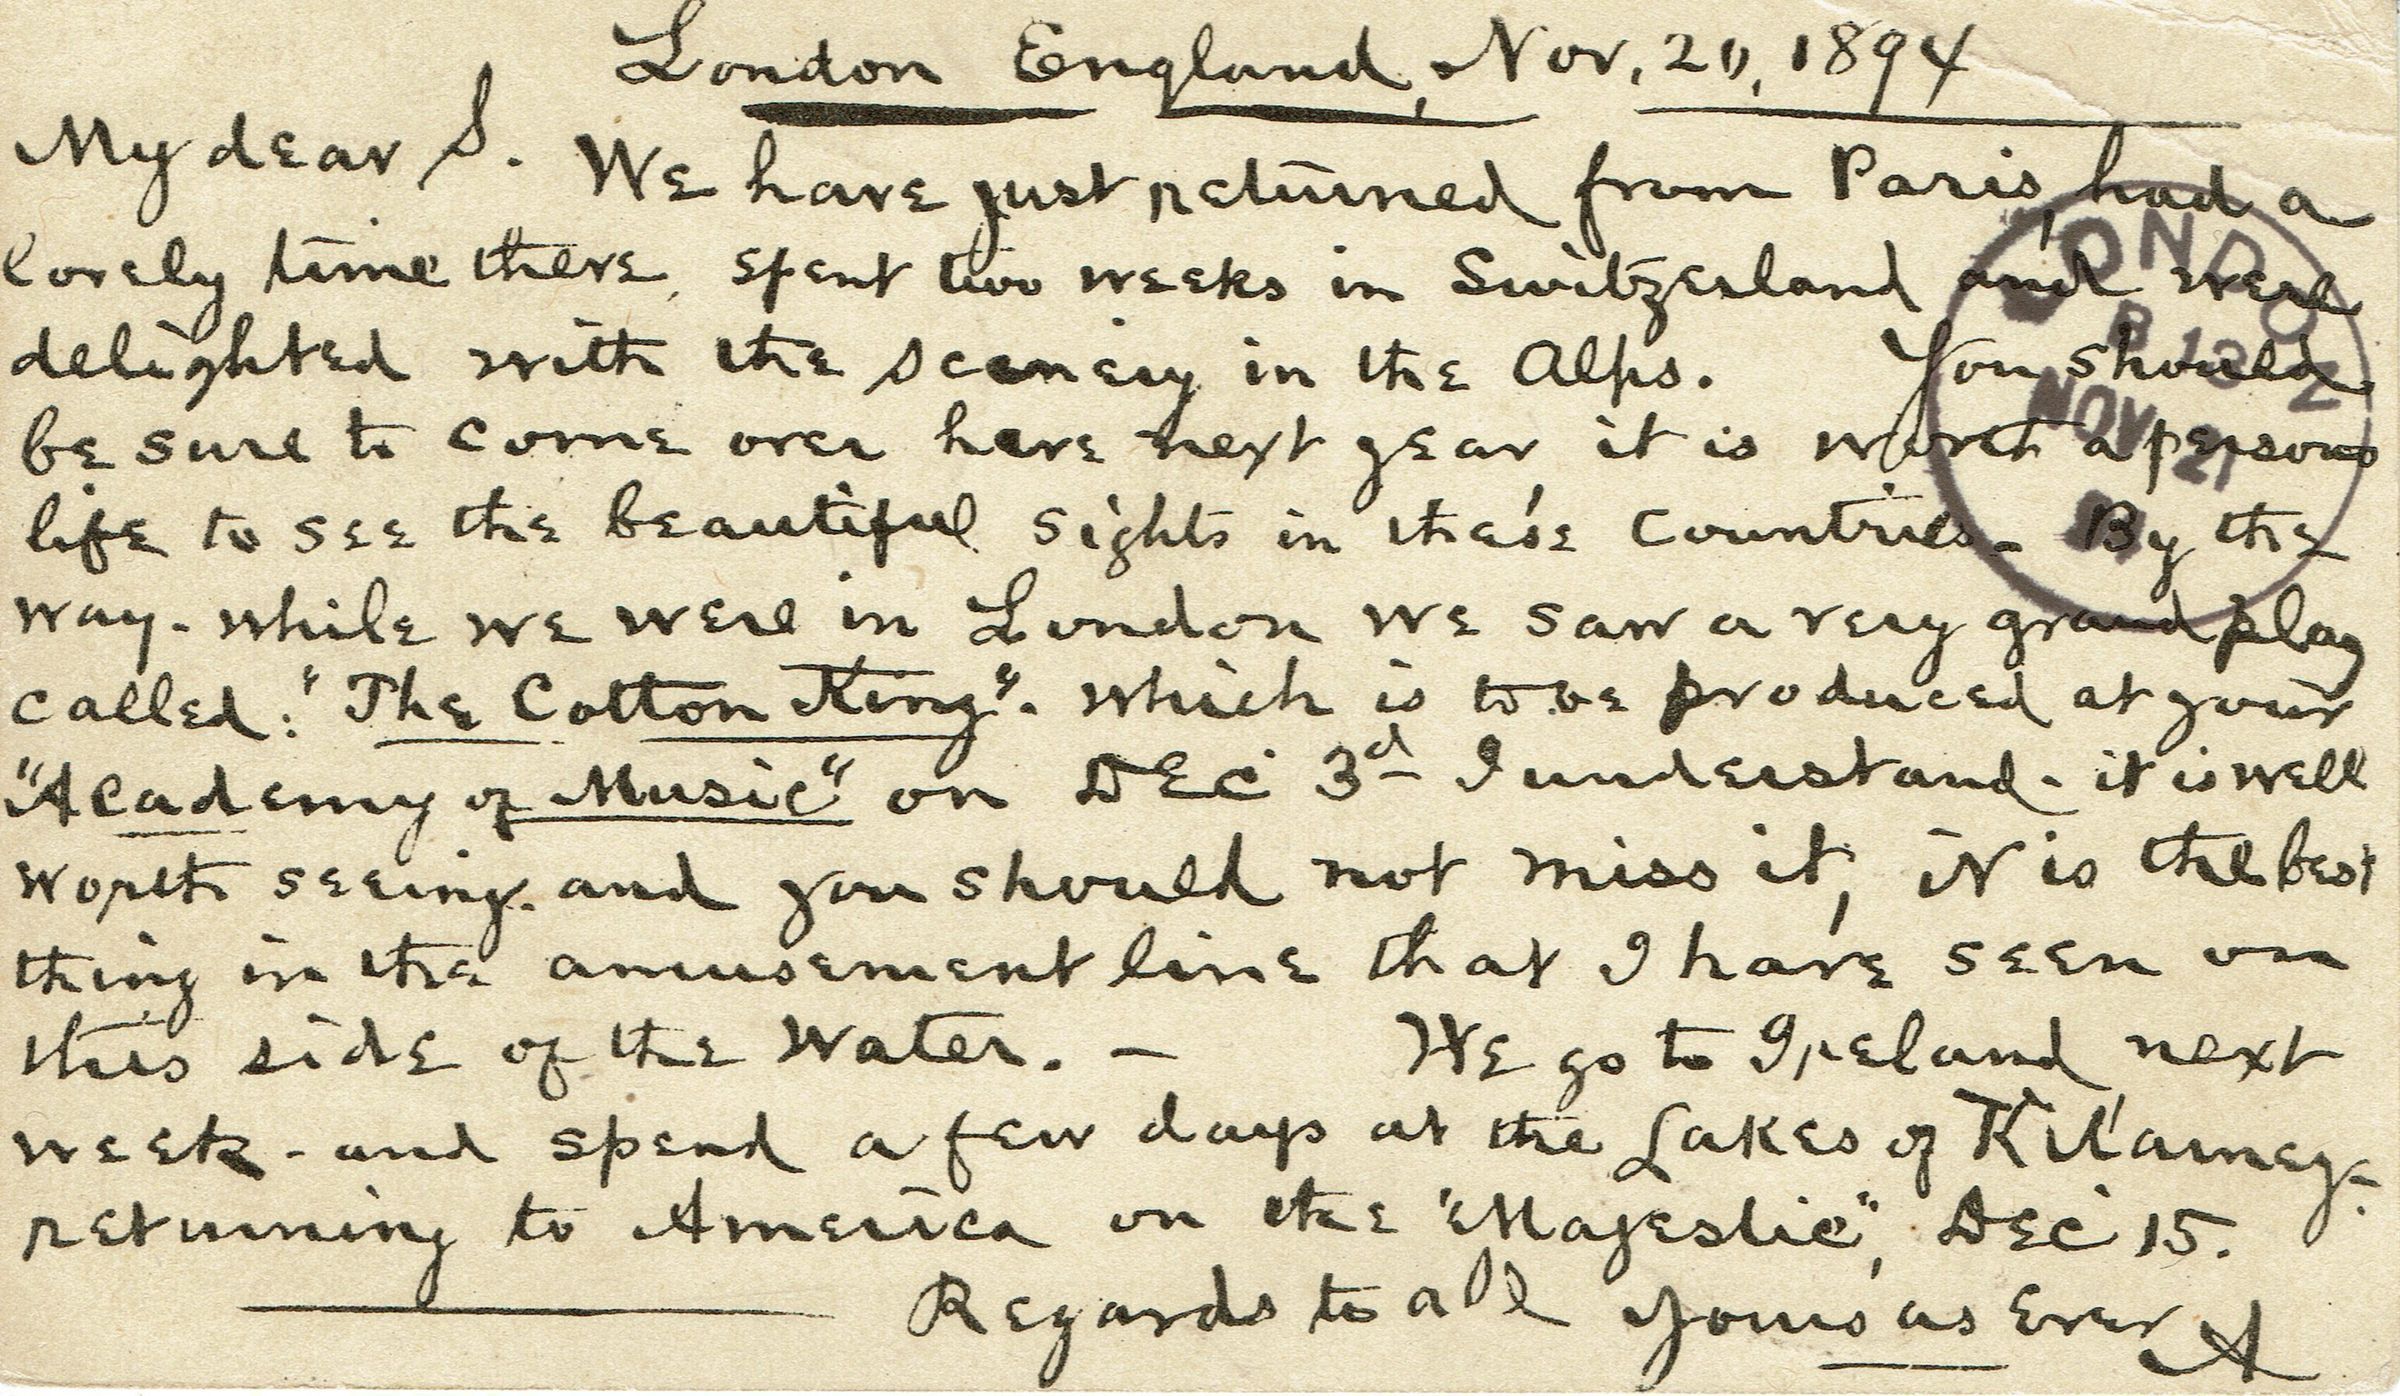 London England, Nov, 20, 1894
My dear S. We have just returned from Paris, had a
lovely time there, spent two weeks in Switzerland and were
delighted with the scenery in the Alps. You should
be sure to come over here next year, it is worth a persons
life to see the beautiful sights in these countries - By the
way - while we were in London we saw a very grand play
called: "The Cotton King". which is to be produced at your
"Academy of Music" on Dec 3d I understand - it is well
worth seeing. and you should not miss it, it is the best
thing in the amusement line that I have seen on
this side of the Water. - We go to Ireland, next
week - and spend a few days at the Lakes of Kilarney -
returning to America on the "Majestic", Dec 15.
Regards to all Yours as Ever A
LONDON
NOV 21